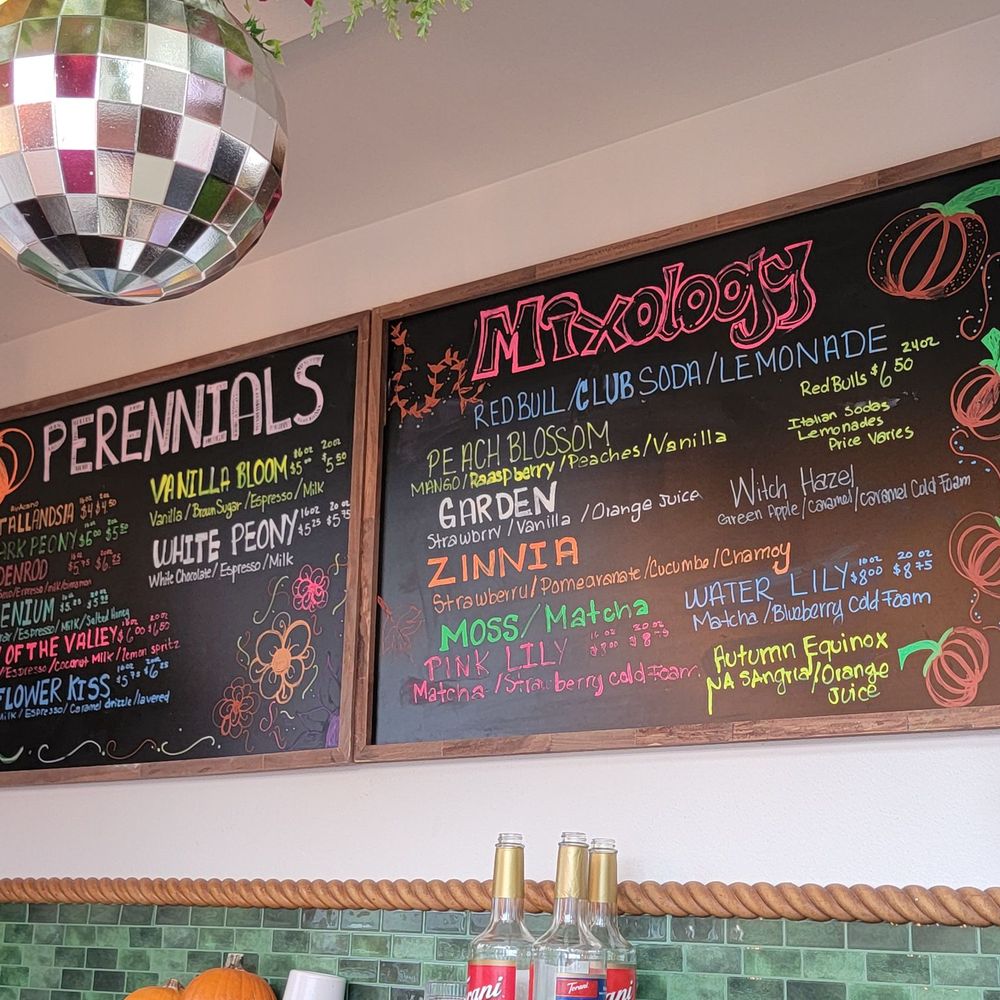 PERENNIALS
TALLANDSIA 16oz $4 20oz $4.50
ARK PEONY $5.00 $5.50
DENROD 16oz $5.75 20oz $6.25
ENIUM $5.25 $5.95
Espresso/Milk/Salted Honey
OF THE VALLEY $6.00 $6.50
/Espresso/Coconut Milk/lemon spritz
FLOWER KISS 16oz $5.75 20oz $6.25
Milk/Espresso/Caramel drizzle/layered
VANILLA BLOOM 16oz $5.00 20oz $5.50
Vanilla/Brown Sugar/Espresso/Milk
WHITE PEONY 16oz $5.25 20oz
White Chocolate/Espresso/Milk
Mixology
RED BULL/CLUB SODA/LEMONADE
24oz
Red Bulls $6.50
Italian Sodas
Lemonades
Price Varies
PEACH BLOSSOM
MANGO/Raaspberry/Peaches/Vanilla
GARDEN
Strawbrry/Vanilla/Orange Juice
Witch Hazel
Green Apple/Caramel/Caramel Cold Foam
ZINNIA
Strawberry/Pomearanate/Cucumbe/Chamoy
MOSS/Matcha
16oz 20oz
PINK LILY $8.00 $8.75
Matcha/Strawberry cold Foam
WATER LILY 16oz $8.00 20oz $8.75
Matcha/Blueberry Cold Foam
Autumn Equinox
NA SAngria/Orange
Juice
rani
Torani
rani